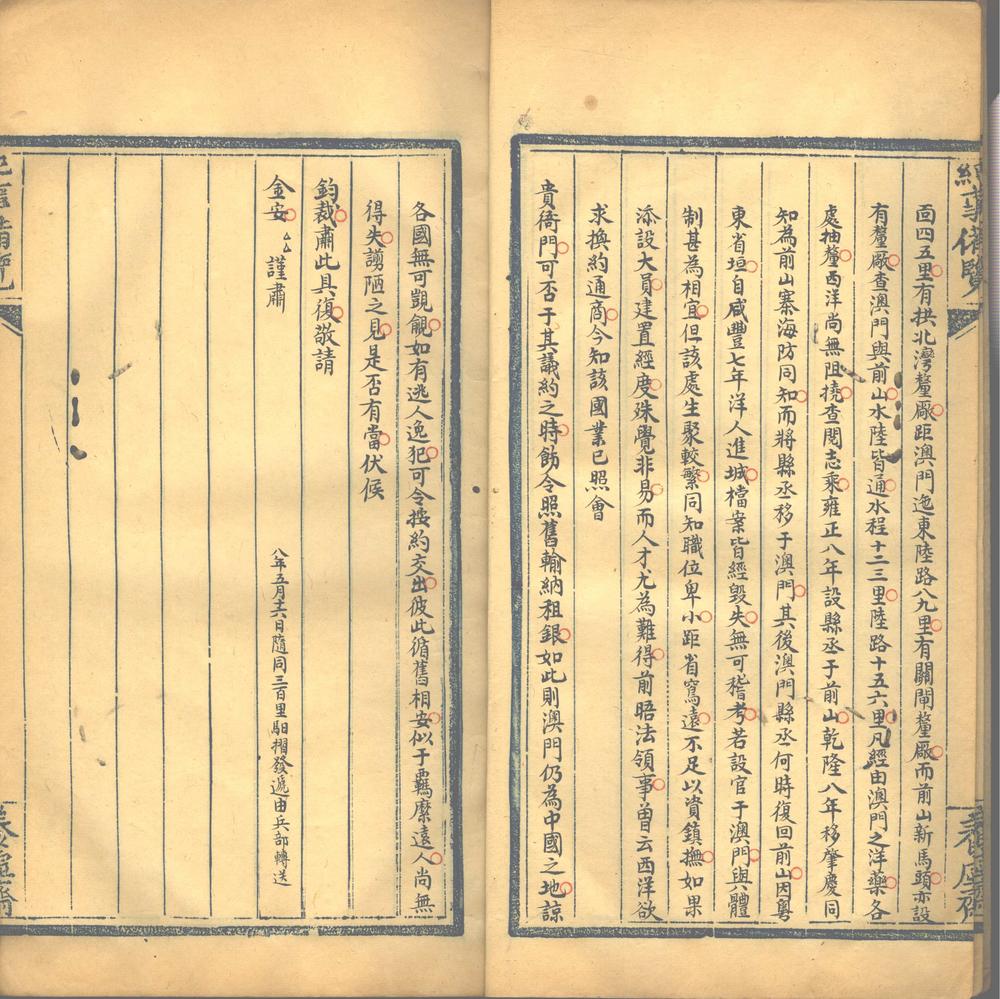 面四五里有拱北灣釐厰距澳門迤東陸路八九里有關閘釐厰而前山新馬頭亦設
有釐厰查澳門與前山水陸皆通水程十二三里陸路十五六里凡經由澳門之洋藥各
處抽釐西洋尚無阻撓查閱志乘雍正八年設縣丞于前山乾隆八年移肇慶同
知為前山寨海防同知而將縣丞移于澳門其後澳門縣丞何時復回前山因粵
東省垣自咸豐七年洋人進城檔案皆經毀失無可稽考若設官于澳門與體
制甚為相宜但該處生聚較繁同知職位卑小距省窵遠不足以資鎮撫如果
添設大員建置經度殊覺非易而人才尤為難得前晤法領事曽云西洋欲
求換約通商今知該國業已照會
貴衙門可否于其議約之時飭令照舊輸納租銀如此則澳門仍為中國之地諒
各國無可覬覦如有逃人逸犯可令按約交出彼此循舊相安似于羈縻遠人尚無
得失謭陋之見是否有當伏候
鈞裁肅此具復敬請
金安 謹肅
八年五月十六日隨同三百里馹摺發遞由兵部轉送